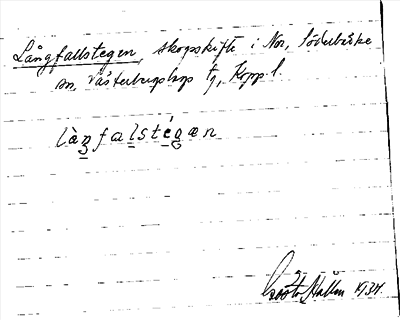 Långfallstegen, skogsskifte i Nor, Söderbärke
sn, Västerbergslags tg, Kopp l.
làŋfalstégæn
Gösta Hallin 1934.